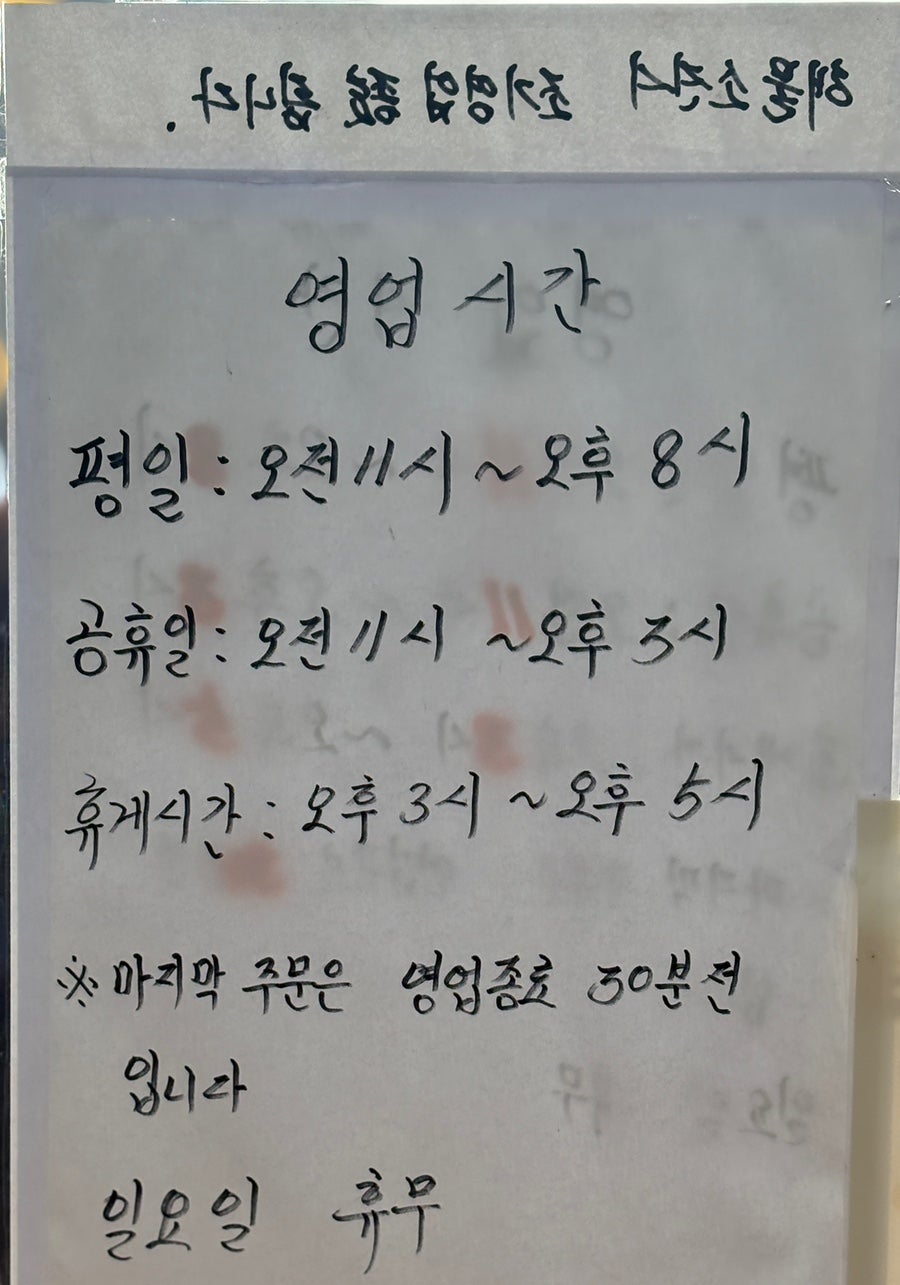 해물소진시 조기영업 종료 합니다.
영업시간
평일 : 오전 11시 ~ 오후 8시
공휴일 : 오전 11시 ~ 오후 3시
휴게시간 : 오후 3시 ~ 오후 5시
※ 마지막 주문은 영업종료 30분전
입니다
일요일 휴무